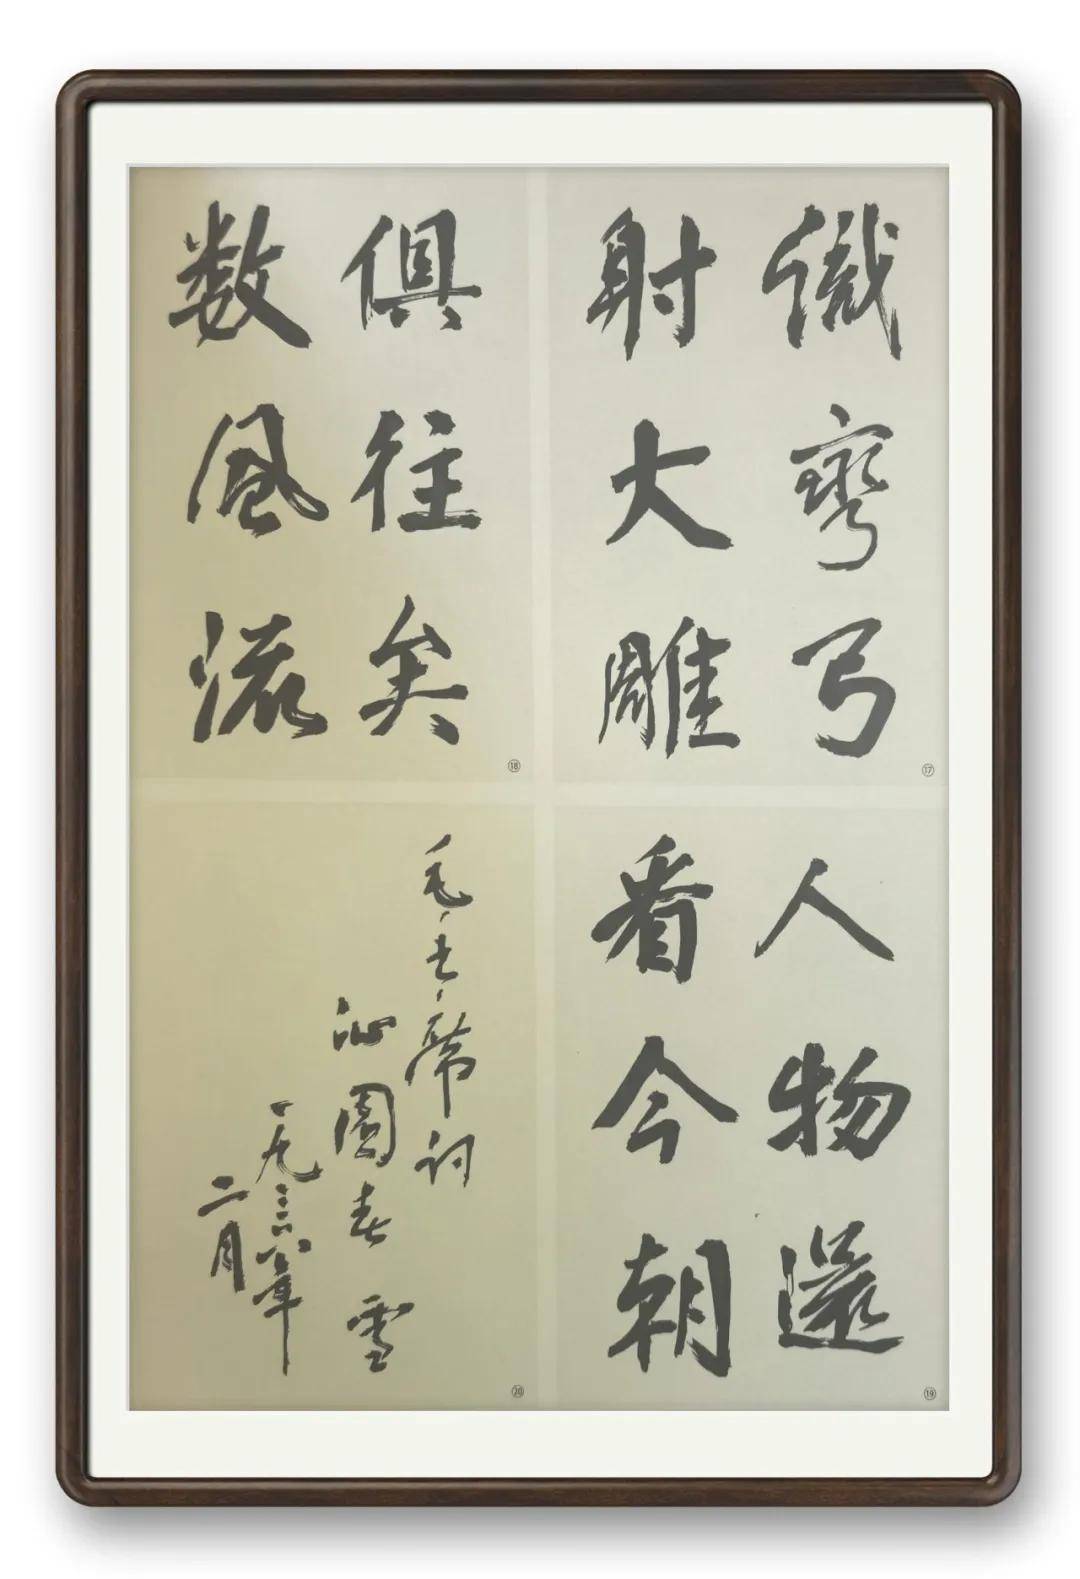 識彎弓
射大雕
⑰
俱往矣
数風流
⑱
人物還
看今朝
⑲
毛主席词
沁園春 雪
一九三六年
二月
⑳